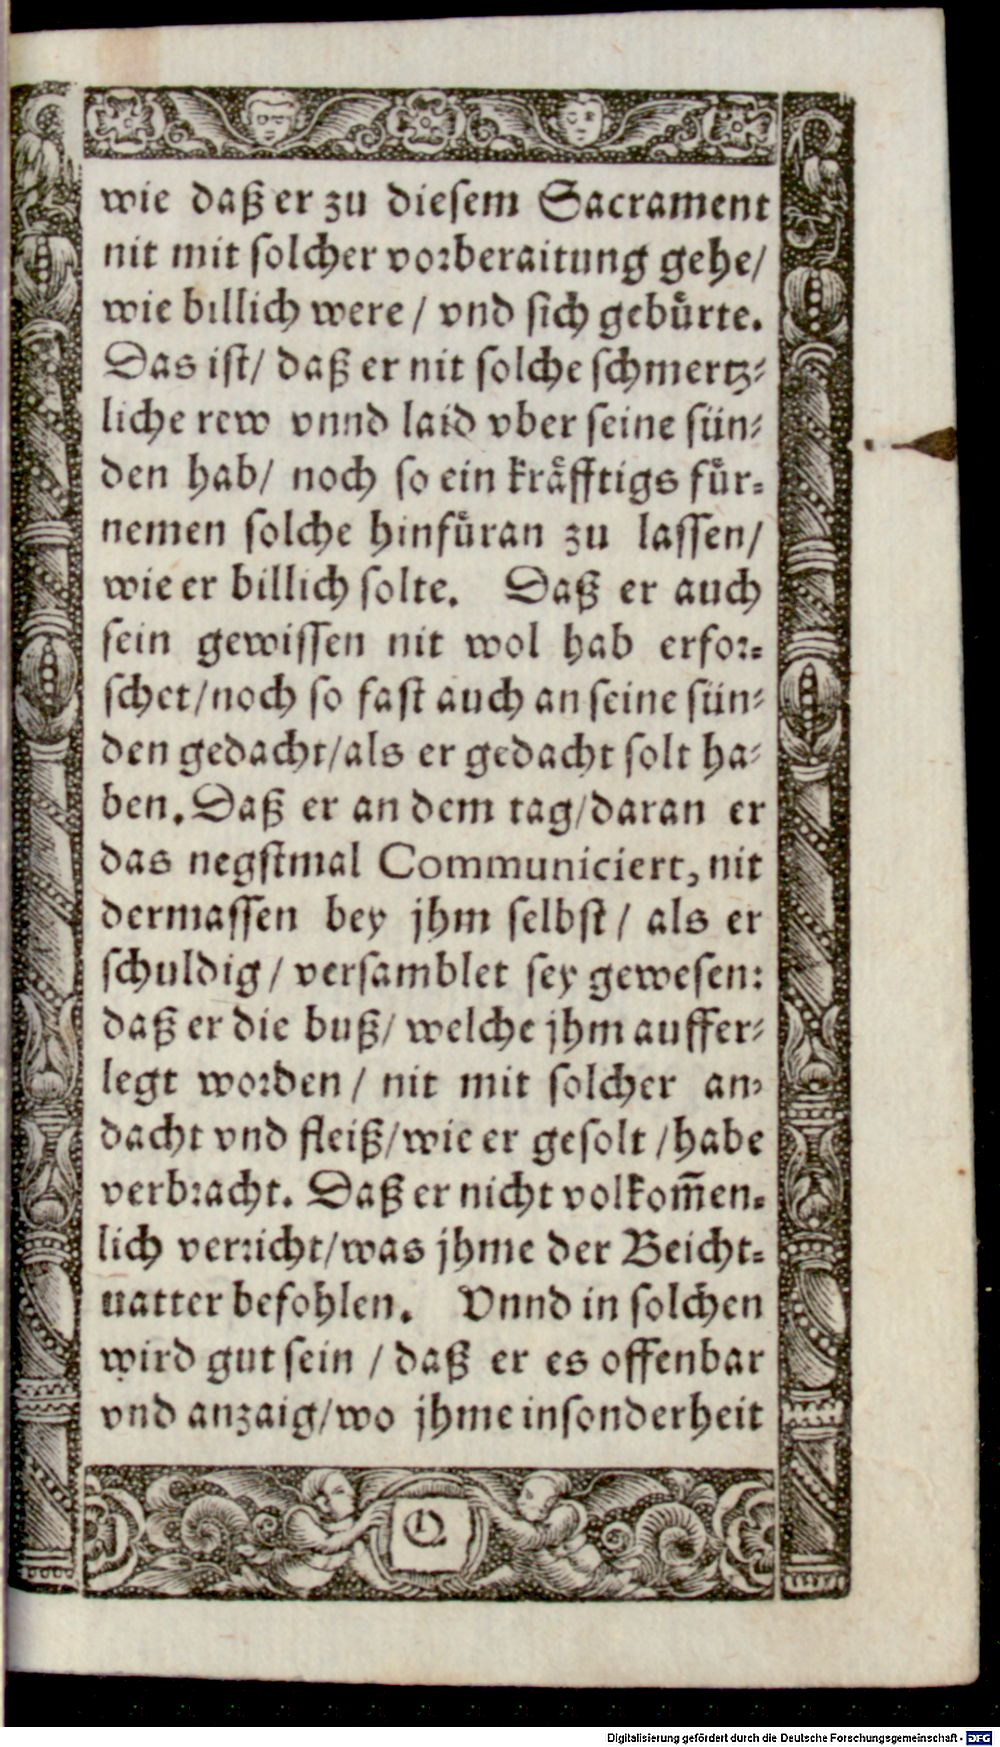 wie daß er zu diesem Sacrament
nit mit solcher vorberaitung gehe/
wie billich were / vnd sich gebuͤrte.
Das ist/ daß er nit solche schmertz-
liche rew vnnd laid vber seine sün-
den hab/ noch so ein kraͤfftigs fuͤr-
nemen solche hinfuͤran zu lassen/
wie er billich solte. Daß er auch
sein gewissen nit wol hab erfor-
schet/noch so fast auch an seine sün-
den gedacht/als er gedacht solt ha-
ben. Daß er an dem tag/daran er
das negstmal Communiciert, nit
dermassen bey jhm selbst / als er
schuldig / versamblet sey gewesen:
daß er die buß/ welche jhm auffer-
legt worden / nit mit solcher an-
dacht vnd fleiß/wie er gesolt /habe
verbracht. Daß er nicht volkom̃en-
lich verricht/was jhme der Beicht-
uatter befohlen. Vnnd in solchen
wird gut sein / daß er es offenbar
vnd anzaig/wo jhme insonderheit
Q
Digitalisierung gefördert durch die Deutsche Forschungsgemeinschaft - DFG